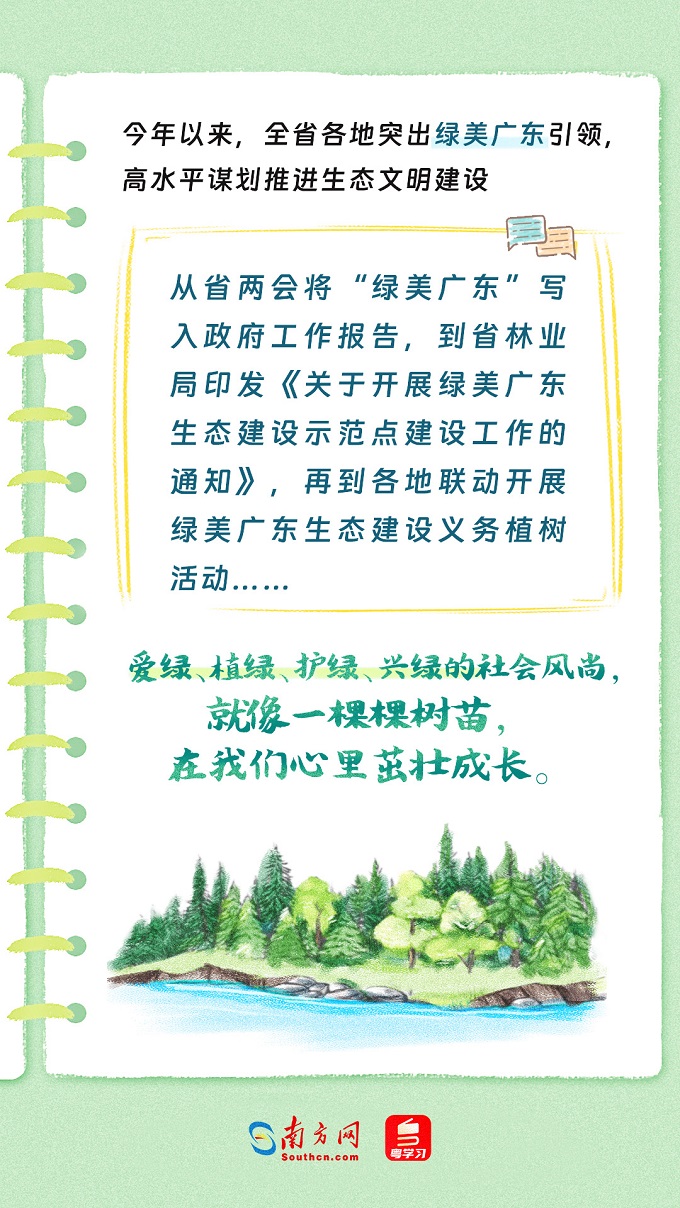 今年以来，全省各地突出绿美广东引领，
高水平谋划推进生态文明建设
从省两会将“绿美广东”写
入政府工作报告，到省林业
局印发《关于开展绿美广东
生态建设示范点建设工作的
通知》，再到各地联动开展
绿美广东生态建设义务植树
活动……
爱绿、植绿、护绿、兴绿的社会风尚，
就像一棵棵树苗，
在我们心里茁壮成长。
南方网
Southcn.com
粤学习